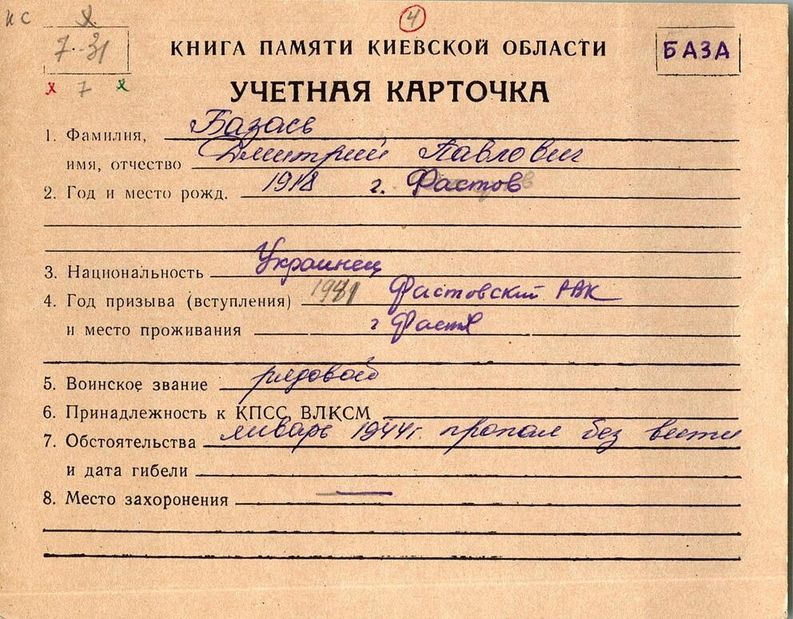 ИС
4
7-31
КНИГА ПАМЯТИ КИЕВСКОЙ ОБЛАСТИ
БАЗА
х 7 х
УЧЕТНАЯ КАРТОЧКА
1. Фамилия, Базась
имя, отчество Дмитрий Павлович
2. Год и место рожд. 1918 г. Фастов
3. Национальность Украинец
4. Год призыва (вступления) 1941 Фастовский РВК
и место проживания г Фастов
5. Воинское звание рядовой
6. Принадлежность к КПСС ВЛКСМ
7. Обстоятельства январь 1944г. пропал без вести
и дата гибели
8. Место захоронения —